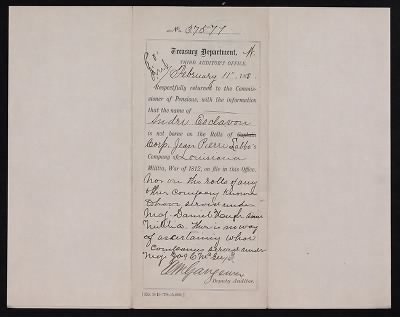 No. 37577
Treasury Department,
THIRD AUDITOR'S OFFICE,
February 11", 188
Respectfully returned to the Commis-
sioner of Pensions, with the information
that the name of
Andre Esclavon
is not borne on the Rolls of Captain
Corp. Jean Pierre Labbe's
Company Louisiana
Militia, War of 1812, on file in this Office.
Nor on the rolls of any
other company known
to have served under
Maj. Daniel same
militia. There is no way
of ascertaining what
companies served under
Maj.
Deputy Auditor.